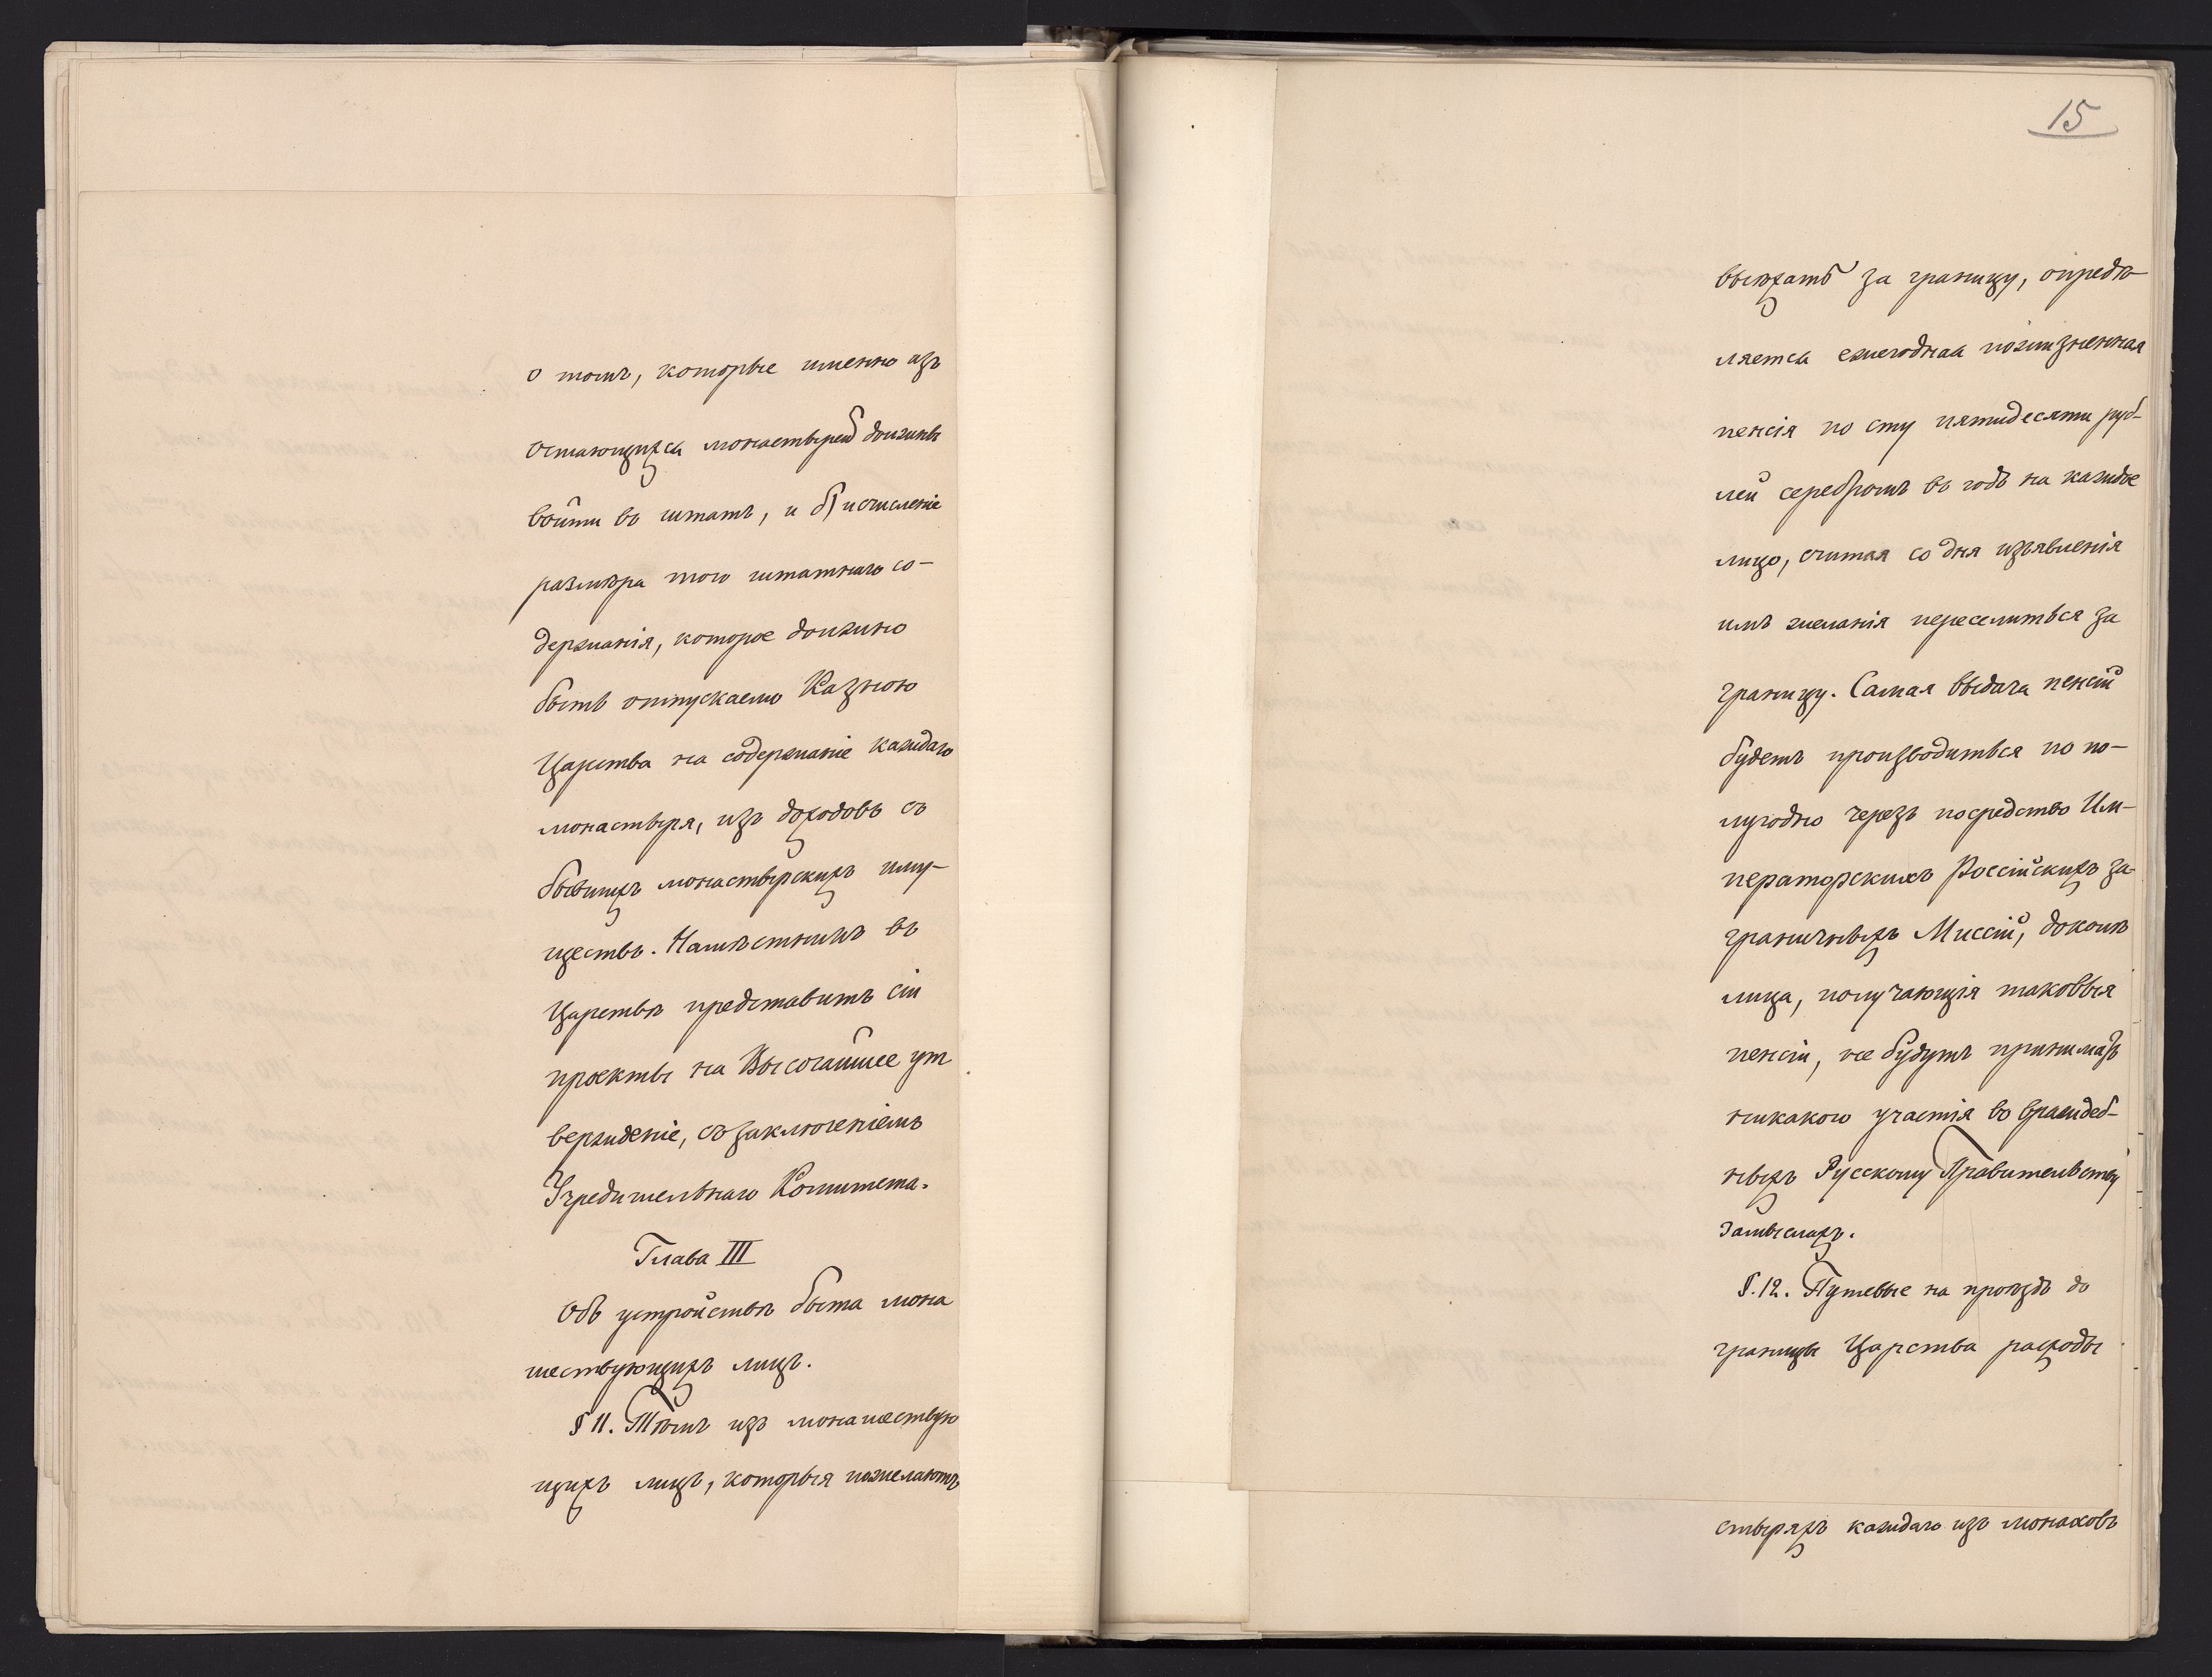 о томъ, которые именно изъ
остающихся монастырей должны
войти въ штатъ, и б) исчисленіе
размѣра того штатнаго со-
держанія, которое должно
быть отпускаемо Казною
Царства на содержаніе каждаго
монастыря, изъ доходовъ съ
бывшихъ монастырскихъ иму-
ществъ. Намѣстникъ въ
Царствѣ представитъ сіи
проекты на Высочайшее ут
вержденіе, съ заключеніемъ
Учредительнаго Комитета.
Глава III
Объ устройствѣ быта мона
шествующихъ лицъ.
§ 11. Тѣмъ изъ монашествую
щихъ лицъ, которыя пожелаютъ
15
выѣхать за границу, опредѣ-
ляется ежегодная пожизненная
пенсія по сту пятидесяти руб-
лей серебромъ въ годъ на каждое
лицо, считая со дня изъявленія
имъ желанія переселиться за
границу. Самая выдача пенсій
будетъ производиться по по-
лугодно черезъ посредство Им-
ператорскихъ Россійскихъ за-
граничныхъ Миссій, доколѣ
лица, получающія таковыя
пенсіи, не будутъ принимать
никакого участія во враждеб-
ныхъ Русскому Правительству
замыслахъ.
§. 12. Путевые на проѣздъ до
границы Царства расходы
стыряхъ каждаго изъ монаховъ